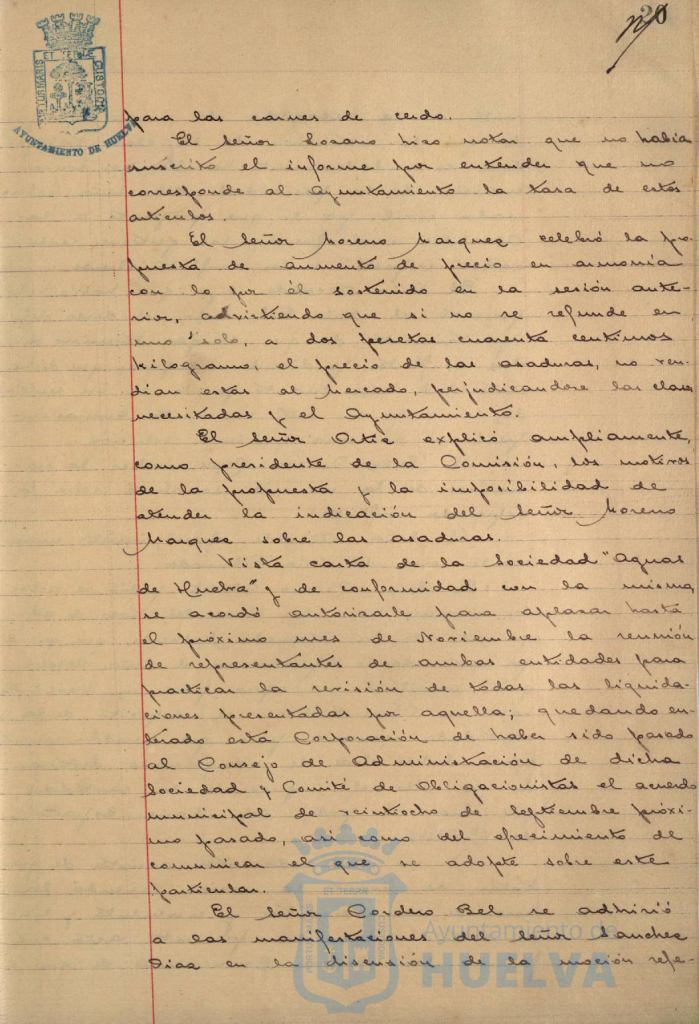 20
para las carnes de cerdo.
El Señor Lozano hizo notar que no había
suscrito el informe por entender que no
corresponde al Ayuntamiento la tasa de estos
artículos.
El Señor Moreno Marquez celebró la pro-
puesta de aumento de precio en armonía
con lo por él sostenido en la sesión ante-
rior, advirtiendo que si no se refunde en
uno solo, a dos pesetas cuarenta centimos
kilogramo, el precio de las asaduras, no ven-
dían estas al Mercado, perjudicandose las clases
necesitadas y el Ayuntamiento.
El Señor Ortiz explicó ampliamente,
como presidente de la Comisión, los motivos
de la propuesta y la imposibilidad de
atender la indicación del Señor Moreno
Marquez sobre las asaduras.
Vista carta de la Sociedad "Aguas
de Huelva" y de conformidad con la misma,
se acordó autorizarle para aplazar hasta
el próximo mes de Noviembre la reunión
de representantes de ambas entidades para
practicar la revisión de todas las liquida-
ciones presentadas por aquella; quedando en-
terado esta Corporación de haber sido pasado
al Consejo de Administración de dicha
Sociedad y Comité de Obligacionistas el acuerdo
municipal de veintiocho de Septiembre próxi-
mo pasado, asi como del ofrecimiento de
comunicar el que se adopte sobre este
particular.
El Señor Cordero Bel se adhirió
a las manifestaciones del Señor Sanchez
Diaz en la discusión de la moción refe-
AYUNTAMIENTO DE HUELVA
Ayuntamiento de
HUELVA